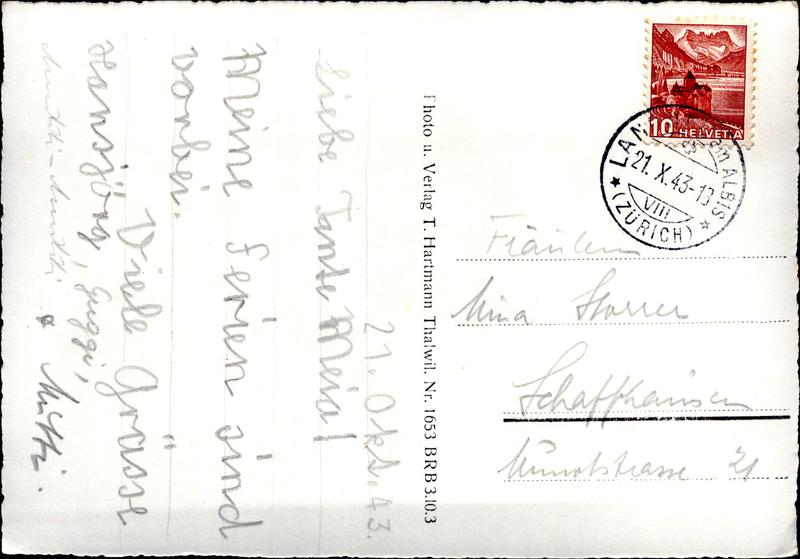 21. Okt. 43.
Liebe Tante Meia!
Meine Ferien sind
vorbei.
Viele Grüsse
Hansjörg, Guggi,
& Mutti.
Photo u. Verlag T. Hartmann Thalwil. Nr. 1653 BRB 3.10.3
10 HELVETIA
LAN AM ALBIS
21. X. 43-13
VIII
(ZÜRICH)
Fräulein
Mina Storrer
Schaffhausen
Munotstrasse 21